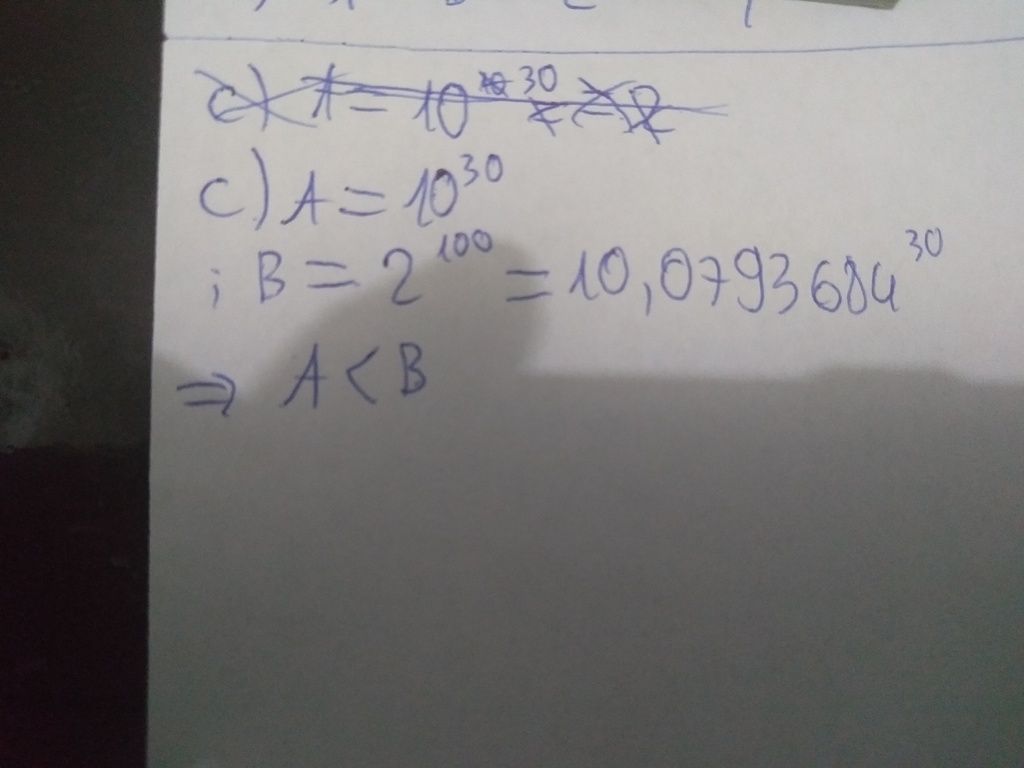 c) A = 10^30
; B = 2^100 = 10,0793684^30
⇒ A < B